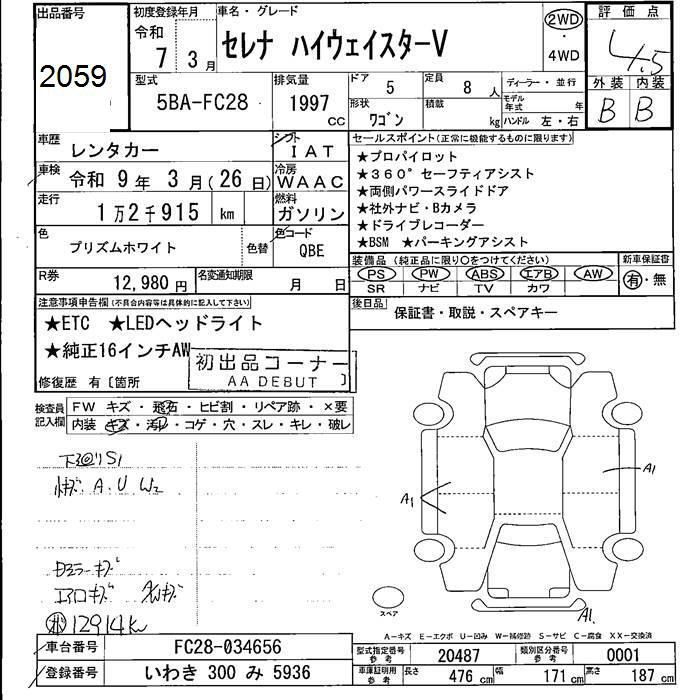 出品番号
2059
初度登録年月
令和
7 3月
車名・グレード
セレナ ハイウェイスターV
2WD
・
4WD
評価点
4.5
外装 内装
B B
型式
5BA-FC28
排気量
1997
cc
ドア
5
定員
8人
形状
ワゴン
積載
kg
ディーラー・並行
モデル年式 年
ハンドル 左・右
車歴
レンタカー
シフト
IAT
車検
令和 9年 3月(26日)
冷房
WAAC
走行
1万2千915 km
燃料
ガソリン
色
プリズムホワイト
色替
色コード
QBE
R券
12,980円
名変通知期限
月 日
セールスポイント(正常に機能するものに限ります)
★プロパイロット
★360°セーフティアシスト
★両側パワースライドドア
★社外ナビ・Bカメラ
★ドライブレコーダー
★BSM ★パーキングアシスト
装備品(純正品に限り○をつけてください)
PS PW ABS エアB AW
SR ナビ TV カワ
新車保証書
有・無
後日品
保証書・取説・スペアキー
注意事項申告欄(不具合内容等は具体的に記入して下さい)
★ETC ★LEDヘッドライト
★純正16インチAW
初出品コーナー
AA DEBUT
修復歴 有〔箇所 〕
検査員
記入欄
FW キズ・飛石・ヒビ割・リペア跡・×要
内装 キズ・汚れ・コゲ・穴・スレ・キレ・破レ
下廻りS1
A.U W2
エアロキズ
12914km
A1
A1
A1.
スペア
A-キズ E-エクボ U-凹み W-補修跡 S-サビ C-腐食 XX-交換済
車台番号
FC28-034656
登録番号
いわき 300 み 5936
型式指定番号
参考
20487
類別区分番号
参考
0001
車庫証明用
参考
長さ 476cm 幅 171cm 高さ 187cm